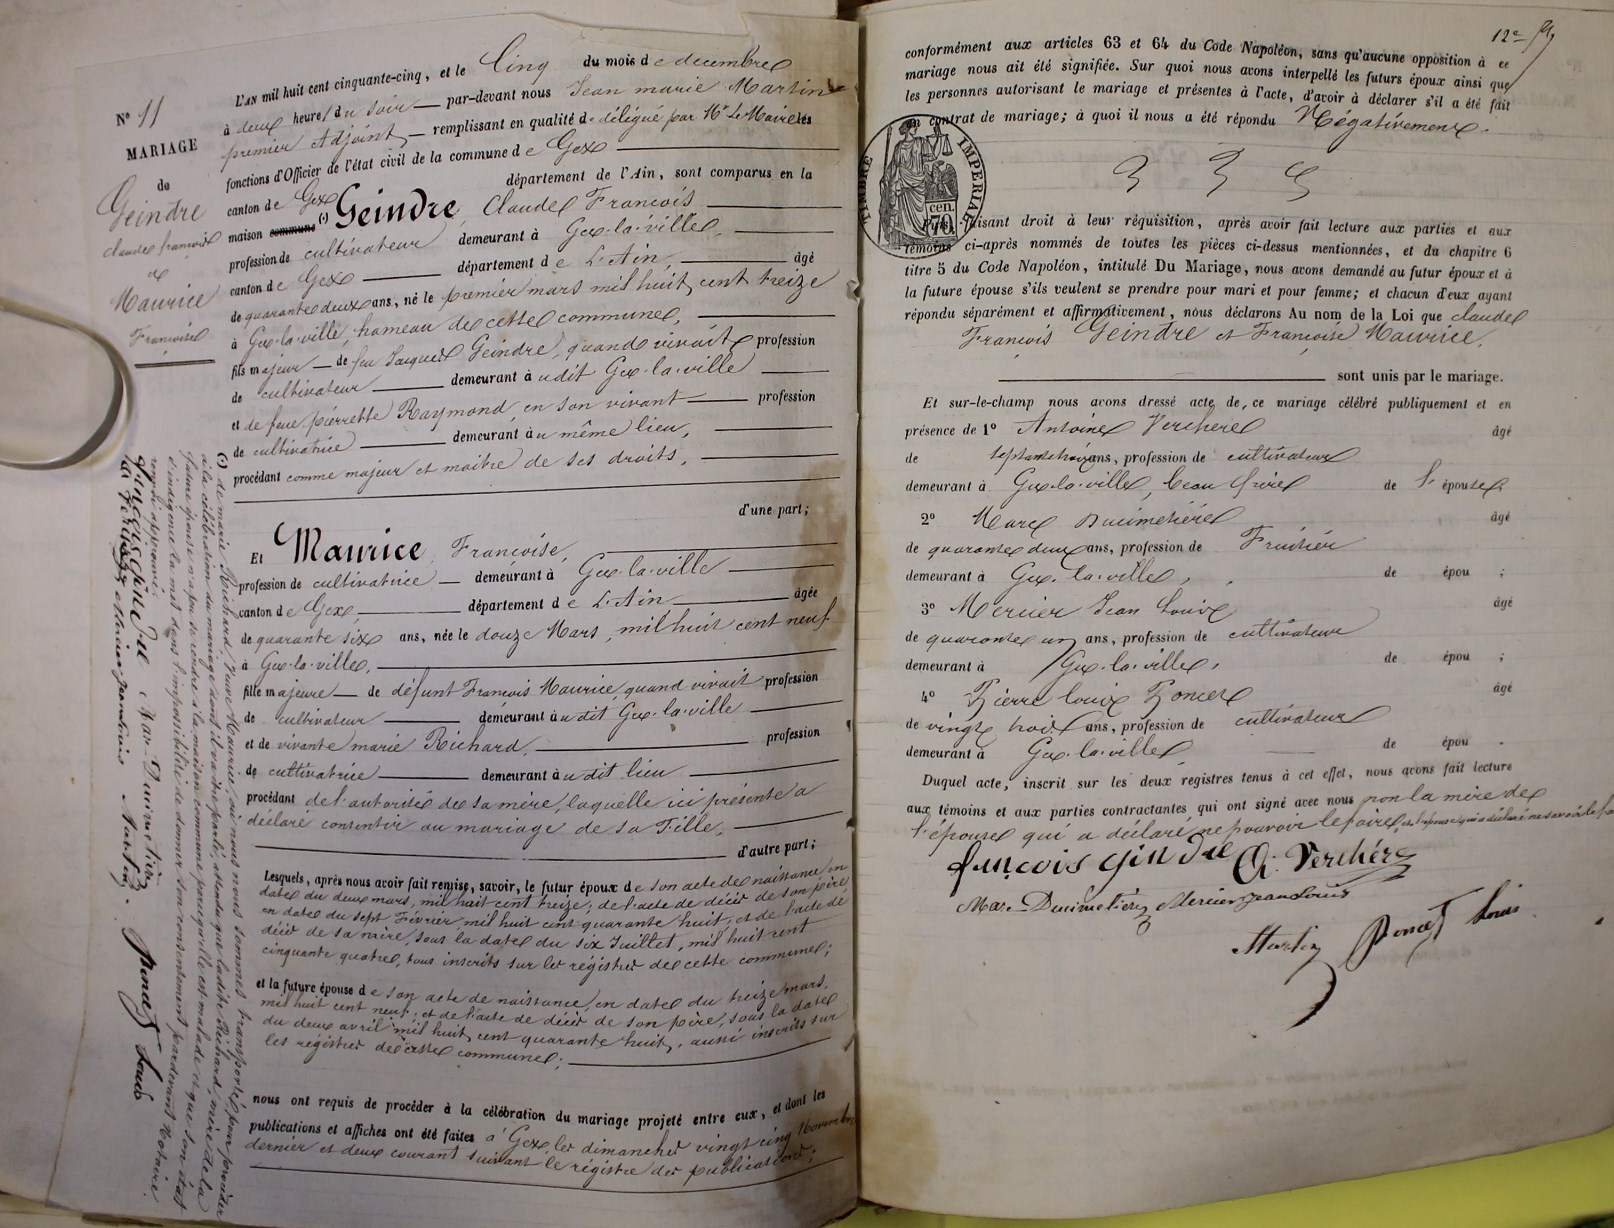 L'AN mil huit cent cinquante-cinq, et le Cinq du mois de decembre
à deux heure du soir par-devant nous Jean marie Martin
premier Adjoint, remplissant en qualité de délégué par Mr Le Maire les
fonctions d'Officier de l'état civil de la commune de Gex
canton de Gex département de l'Ain, sont comparus en la
maison commune (1) Geindre, Claude François
profession de cultivateur demeurant à Gex-la-ville,
canton de Gex département de L'Ain, âgé
de quarante deux ans, né le premier mars mil huit cent treize
à Gex-la-ville, hameau de cette commune,
fils majeur de feu Jacques Geindre, quand vivait profession
de cultivateur demeurant à udit Gex-la-ville
et de feue pierrette Raymond, en son vivant profession
de cultivatrice demeurant àu même lieu,
procédant comme majeur et maitre de ses droits,
d'une part;
Et Maurice, Françoise,
profession de cultivatrice demeurant à Gex-la-ville
canton de Gex, département de L'Ain âgée
de quarante six ans, née le douze Mars, mil huit cent neuf
à Gex-la-ville,
fille majeure de défunt François Maurice, quand vivait profession
de cultivateur demeurant àu dit Gex-la-ville
et de vivante marie Richard, profession
de cultivatrice demeurant àu dit lieu
procédant de l'autorité de sa mère, laquelle ici présente a
déclaré consentir au mariage de sa Fille,
d'autre part;
Lesquels, après nous avoir fait remise, savoir, le futur époux de son acte de naissance en
date du deux mars, mil huit cent treize, de l'acte de décès de son père
en date du sept Février, mil huit cent quarante huit, et de l'acte de
décès de sa mère, sous la date du six Juillet, mil huit cent
cinquante quatre, tous inscrits sur les régistres de cette commune;
et la future épouse de son acte de naissance, en date du treize mars,
mil huit cent neuf; et de l'acte de décès de son père, sous la date
du deux avril mil huit cent quarante huit, aussi inscrits sur
les régistres de cette commune;
nous ont requis de procéder à la célébration du mariage projeté entre eux, et dont les
publications et affiches ont été faites à Gex, les dimanches vingt cinq Novembre
dernier et deux courant suivant le régistre des publications;
No 11
MARIAGE
de
Geindre
claude françois
et
Maurice
Françoise
(1) de marie Richard, veuve Maurice, où nous nous sommes transporté pour procéder
à la célébration du mariage dont il va être parlé, attendu que ladite Richard, mère de la
future épouse n'a pu se rendre à la maison commune parcequ'elle est malade et que son état
d'indigence la met dans l'impossibilité de donner son consentement pardevant Notaire.
françois gindre Mar Ducimetière Martin Poncet Louis
A. Verchère Mercier jean louis
12e
conformément aux articles 63 et 64 du Code Napoléon, sans qu'aucune opposition à ce
mariage nous ait été signifiée. Sur quoi nous avons interpellé les futurs époux ainsi que
les personnes autorisant le mariage et présentes à l'acte, d'avoir à déclarer s'il a été fait
un contrat de mariage; à quoi il nous a été répondu Négativement.
TIMBRE IMPERIAL
cen. 70
faisant droit à leur réquisition, après avoir fait lecture aux parties et aux
témoins ci-après nommés de toutes les pièces ci-dessus mentionnées, et du chapitre 6
titre 5 du Code Napoléon, intitulé Du Mariage, nous avons demandé au futur époux et à
la future épouse s'ils veulent se prendre pour mari et pour femme; et chacun d'eux ayant
répondu séparément et affirmativement, nous déclarons Au nom de la Loi que claude
François Geindre et Françoise Maurice,
sont unis par le mariage.
Et sur-le-champ nous avons dressé acte de, ce mariage célébré publiquement et en
présence de 1o Antoine Verchere âgé
de septante trois ans, profession de cultivateur
demeurant à Gex-la-ville, beau frère de l'épouse;
2o Marc Ducimetière âgé
de quarante deux ans, profession de Fruitier
demeurant à Gex-la-ville, de épou ;
3o Mercier Jean Louis âgé
de quarante un ans, profession de cultivateur
demeurant à Gex-la-ville, de épou ;
4o Pierre louis Poncet âgé
de vingt trois ans, profession de cultivateur
demeurant à Gex-la-ville de épou .
Duquel acte, inscrit sur les deux registres tenus à cet effet, nous avons fait lecture
aux témoins et aux parties contractantes, qui ont signé avec nous non la mère de
l'épouse qui a déclaré ne pouvoir le faire,
françois gindre A. Verchère
Marc Ducimetière Mercier jean louis
Martin Poncet Louis